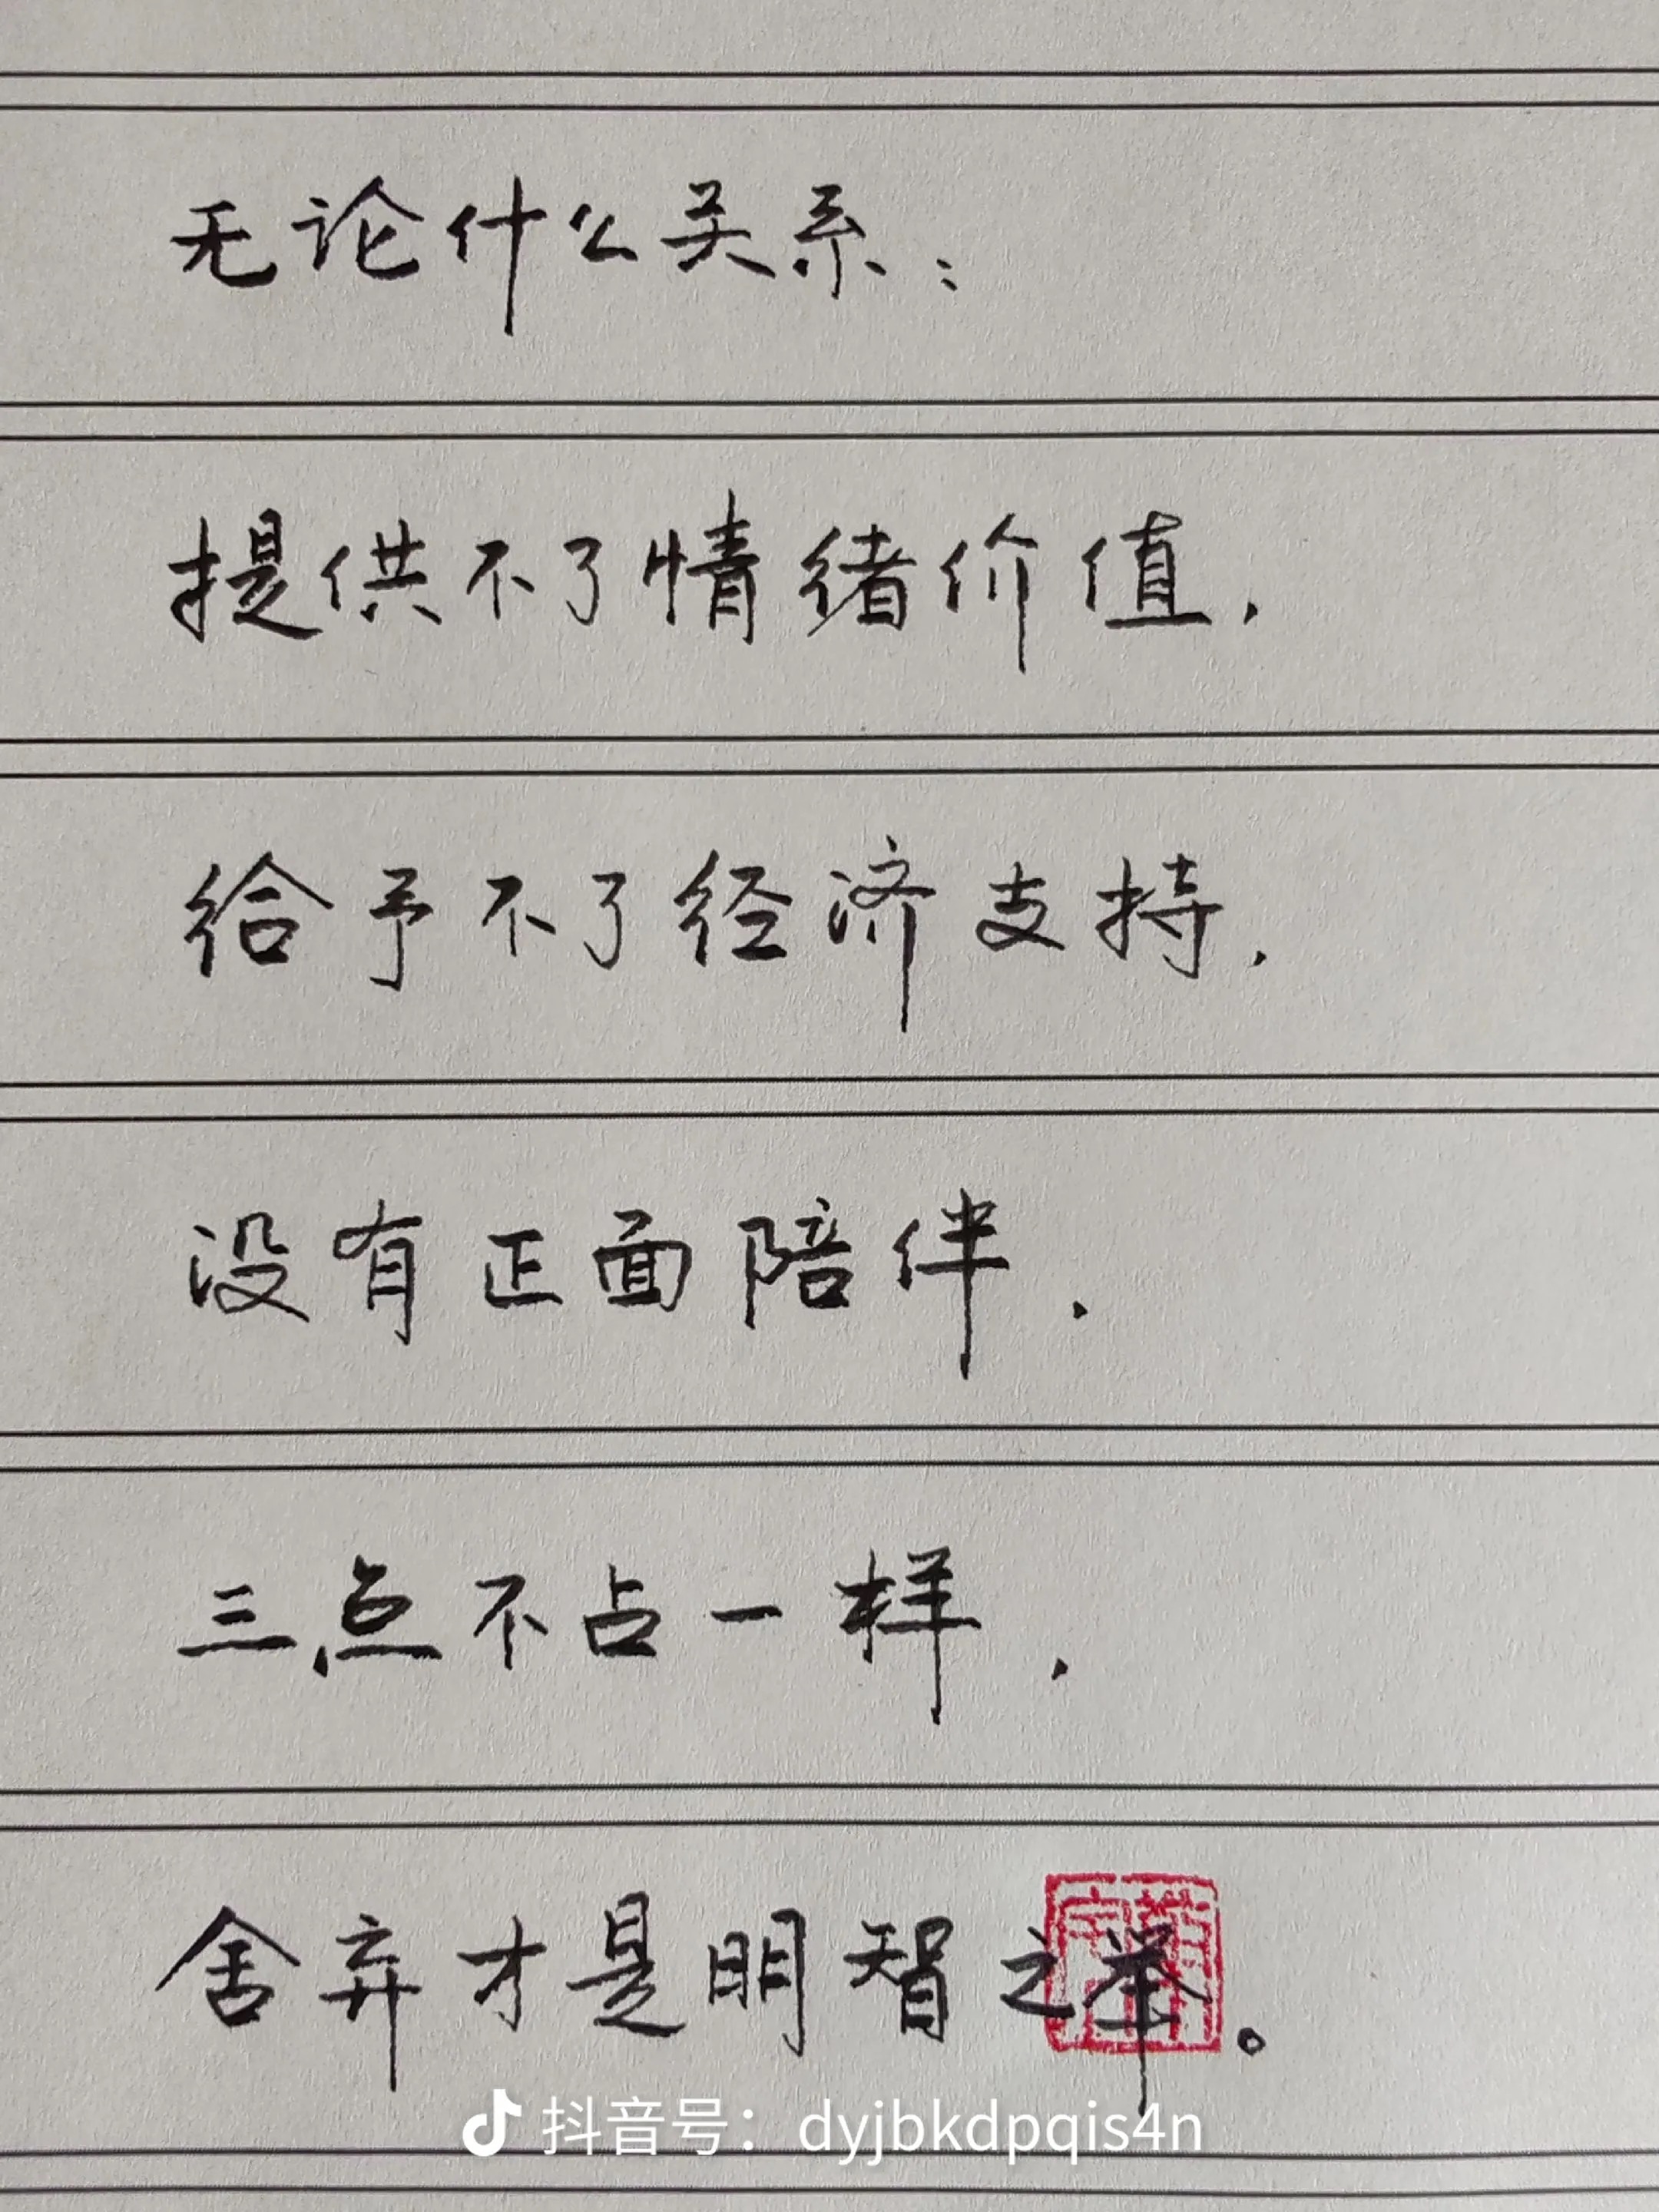 无论什么关系：
提供不了情绪价值，
给予不了经济支持，
没有正面陪伴，
三点不占一样，
舍弃才是明智之举。
抖音号：dyjbkdpqis4n